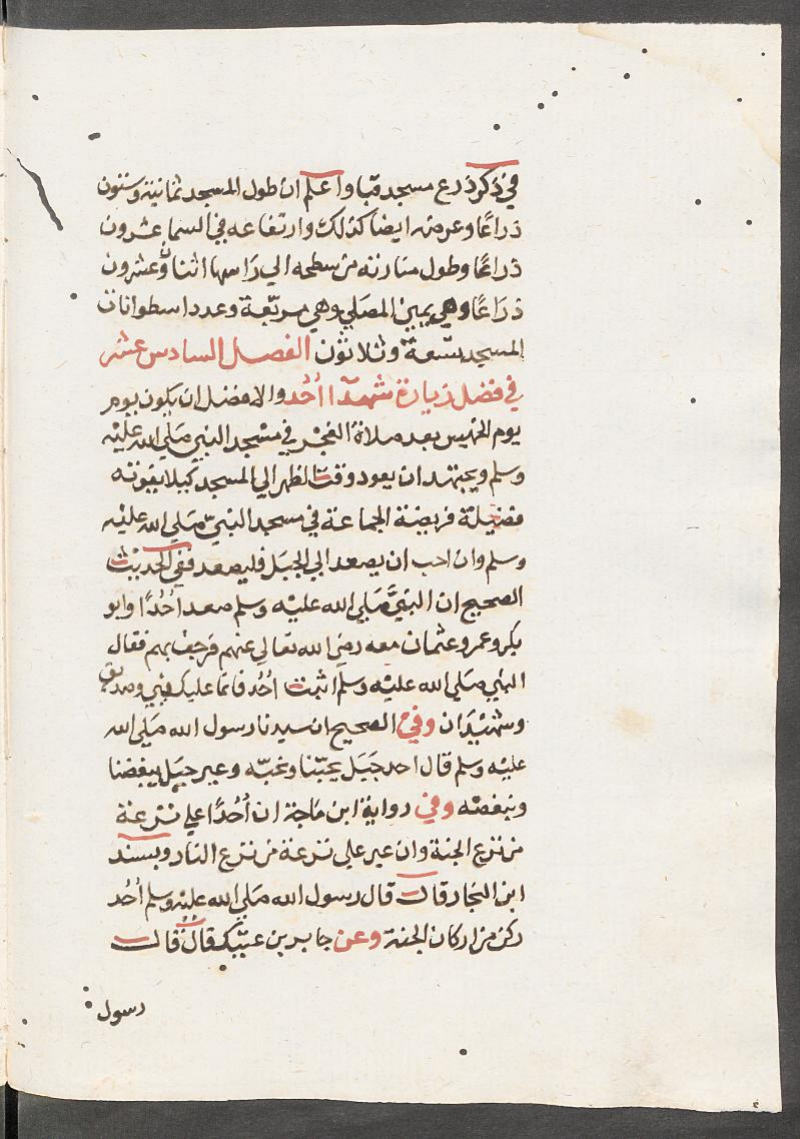 في ذكر ذرع مسجد قبا واعلم ان طول المسجد ثمانية وستون
ذراعًا وعرضه ايضا كذلك وارتفاعه في السما عشرون
ذراعًا وطول منارته من سطحه الي راسها اثنان وعشرون
ذراعًا وهي يمين المصلي وهي مربعة وعدد اسطوانات
المسجد تسعة وثلاثون الفصل السادس عشر
في فضل زيارة شهدآ اُحُد والافضل ان يكون يوم
يوم الخميس بعد صلاة الفجر في مسجد النبي صَلي الله عليه
وسلم ويجتهد ان يعود وقت الظهر الي المسجد كيلا يفوته
فضيلة فريضة الجماعة في مسجد النبي صَلي الله عليه
وسلم وان احب ان يصعد الي الجبل فليصعد ففي الحديث
الصحيح ان النبيَّ صَلي الله عليه وسلم صعد اُحُدًا وابو
بكر وعمر وعثمان معه رضي الله تعالي عنهم فرجف بهم فقال
النبي صَلي الله عليه وسلم اثبت اُحُد فانما عليك نبي وصديق
وشهيدان وفي الصحيح ان سيدنا رسول الله صَلي الله
عليه وسلم قال احد جَبَل يحبّنا ونحبّه وعير جبَل يبغضنا
ونبغضه وفي رواية ابن ماجة ان اُحُدًا علي ترعة
من ترع الجنة وان عير علي ترعة من ترع النار وبسند
ابن النجار قال قال رسول الله صَلي الله عليه وسلم اُحُد
ركن من اركان الجنة وعن جابر بن عتيك قال قال
رسول